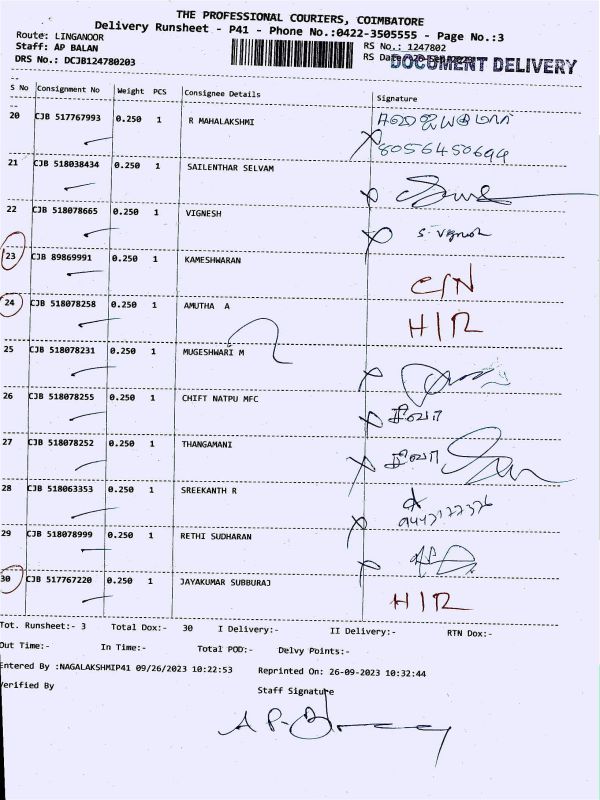 THE PROFESSIONAL COURIERS, COIMBATORE
Delivery Runsheet - P41 - Phone No.:0422-3505555 - Page No.:3
Route: LINGANOOR
RS No.: 1247802
Staff: AP BALAN
RS Date
DOCUMENT DELIVERY
DRS No.: DCJB124780203
S No Consignment No Weight PCS Consignee Details Signature
20 CJB 517767993 0.250 1 R MAHALAKSHMI
8056450694
21 CJB 518038434 0.250 1 SAILENTHAR SELVAM
22 CJB 518078665 0.250 1 VIGNESH S. Vignesh
23 CJB 89869991 0.250 1 KAMESHWARAN C/N
24 CJB 518078258 0.250 1 AMUTHA A H/R
25 CJB 518078231 0.250 1 MUGESHWARI M
26 CJB 518078255 0.250 1 CHIFT NATPU MFC
27 CJB 518078252 0.250 1 THANGAMANI
28 CJB 518063353 0.250 1 SREEKANTH R
29 CJB 518078999 0.250 1 RETHI SUDHARAN
30 CJB 517767220 0.250 1 JAYAKUMAR SUBBURAJ H/R
Tot. Runsheet:- 3 Total Dox:- 30 I Delivery:- II Delivery:- RTN Dox:-
Out Time:- In Time:- Total POD:- Delvy Points:-
Entered By :NAGALAKSHMIP41 09/26/2023 10:22:53 Reprinted On: 26-09-2023 10:32:44
Verified By
Staff Signature